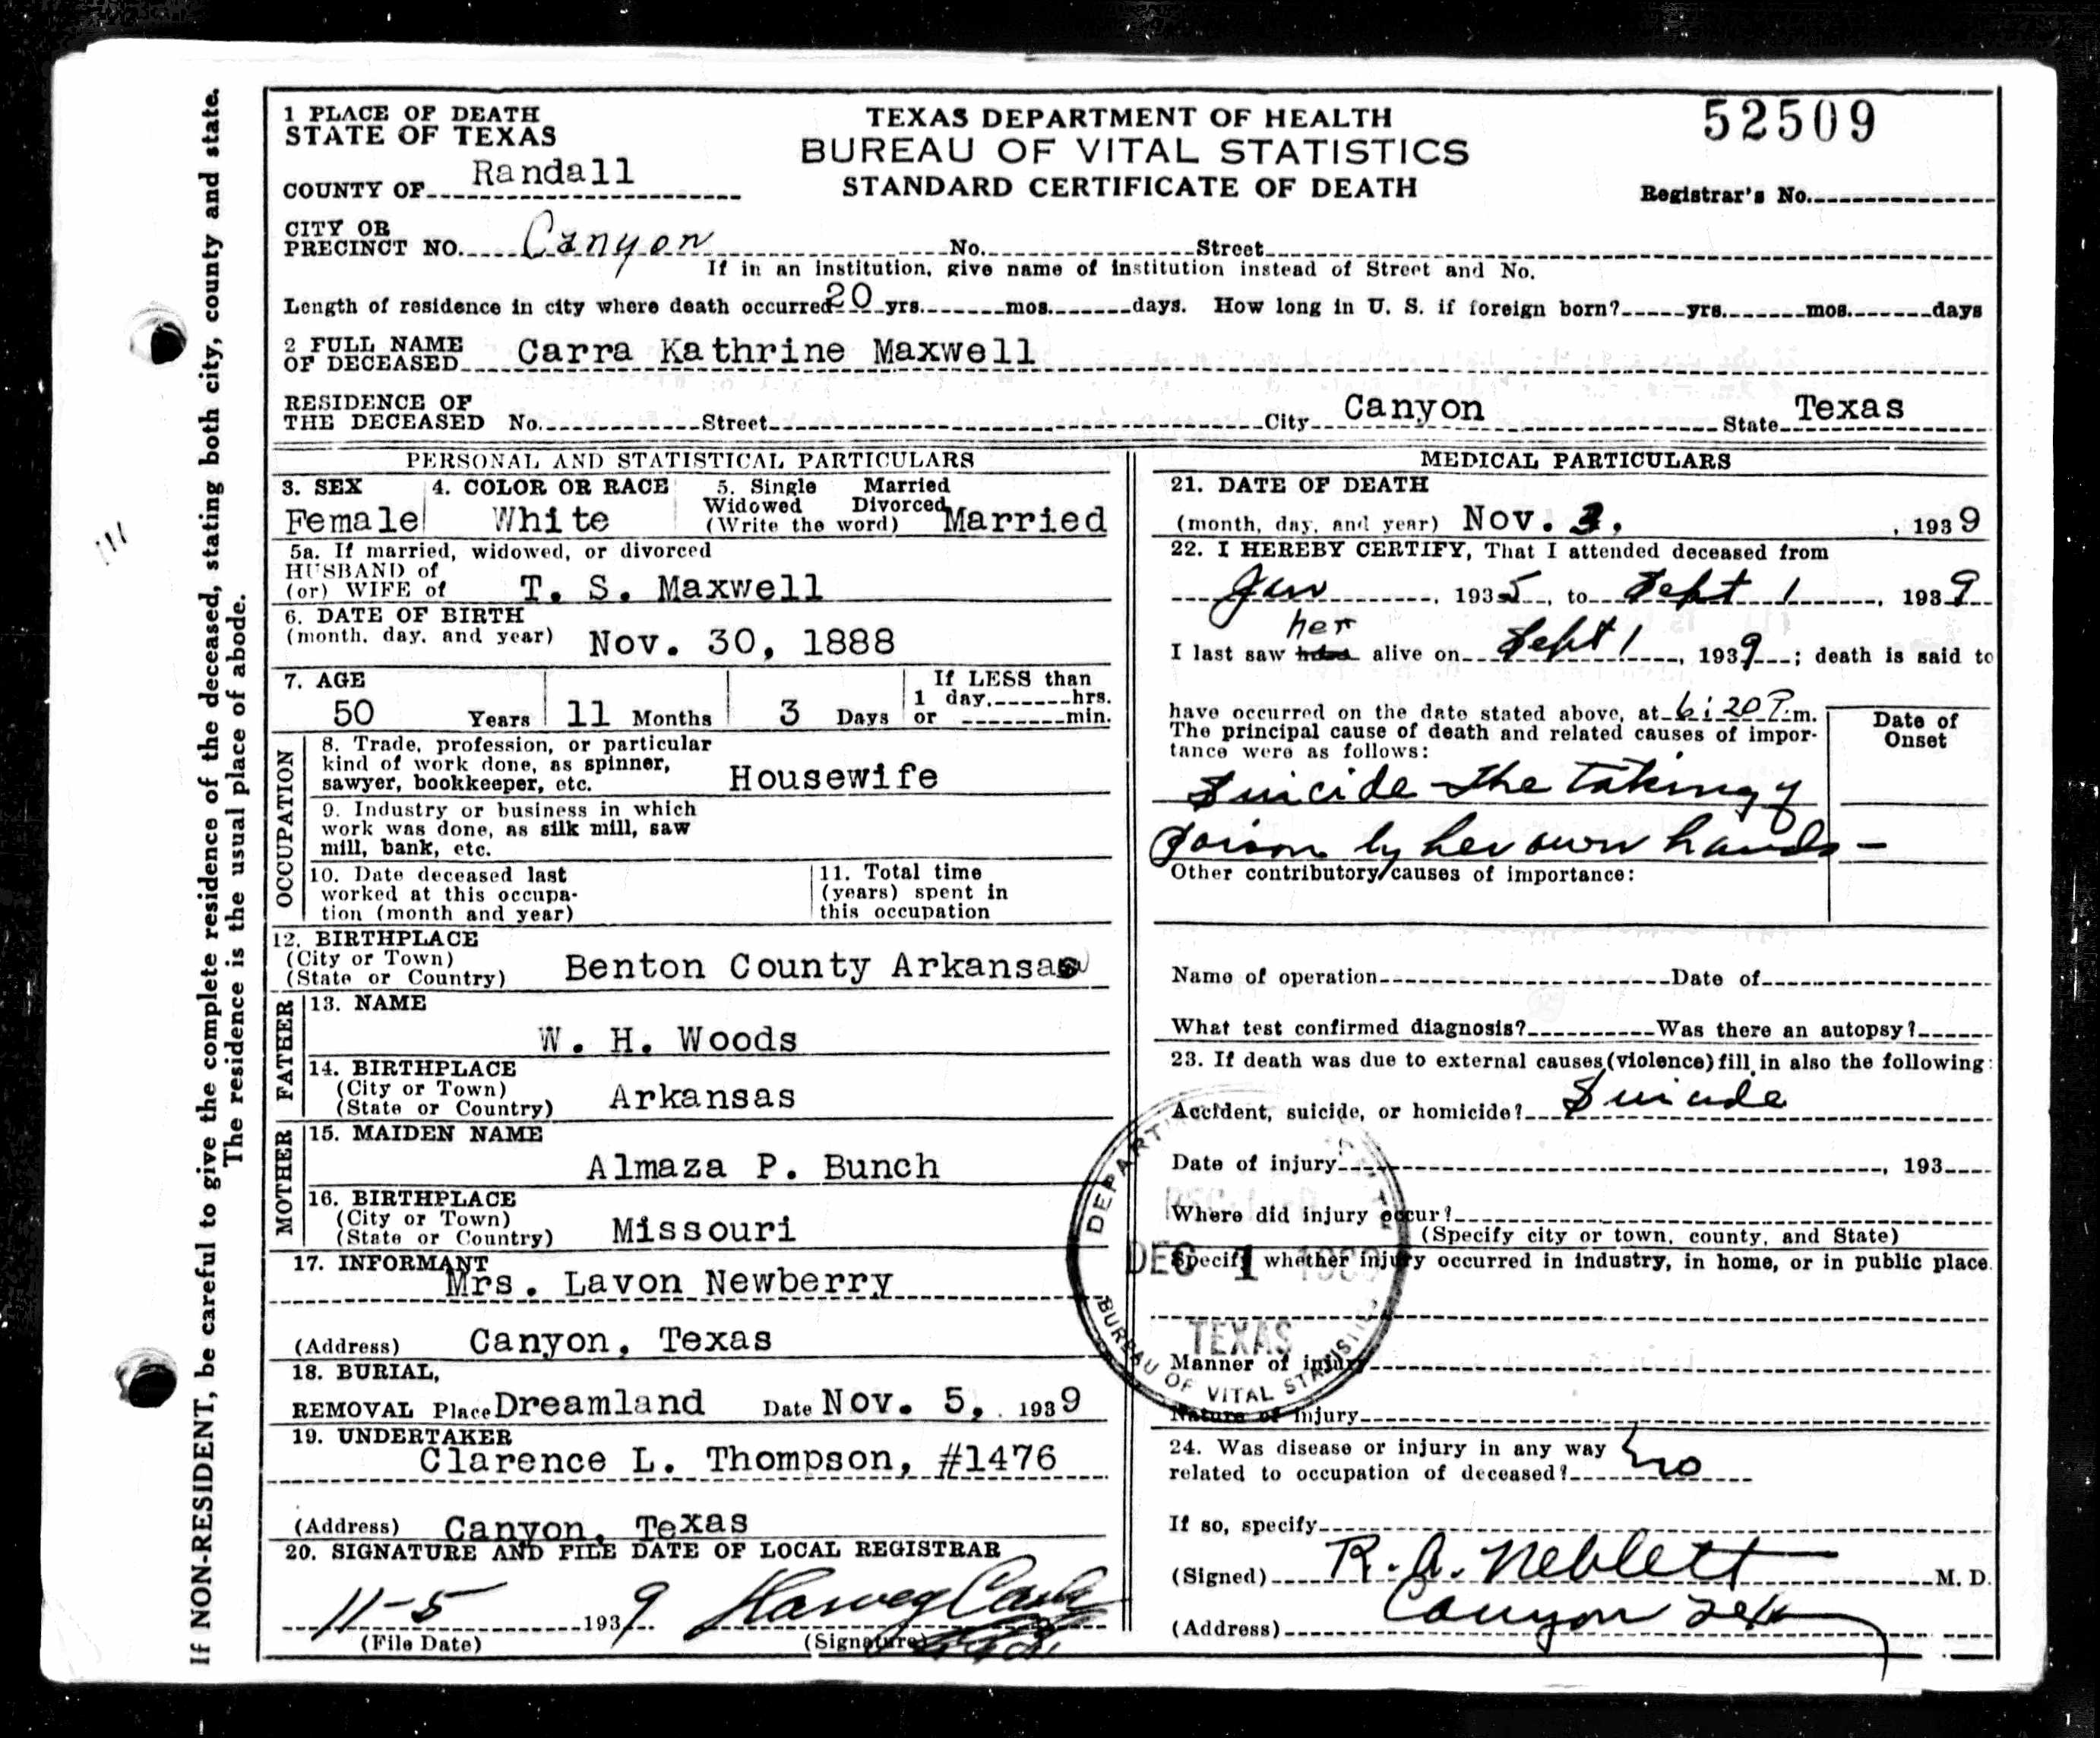 If NON-RESIDENT, be careful to give the complete residence of the deceased, stating both city, county and state.
The residence is the usual place of abode.
1 PLACE OF DEATH
STATE OF TEXAS
COUNTY OF Randall
TEXAS DEPARTMENT OF HEALTH
BUREAU OF VITAL STATISTICS
STANDARD CERTIFICATE OF DEATH
52509
Registrar's No.
CITY OR
PRECINCT NO. Canyon No. Street
If in an institution, give name of institution instead of Street and No.
Length of residence in city where death occurred 20 yrs. mos. days. How long in U. S. if foreign born? yrs. mos. days
2 FULL NAME
OF DECEASED Carra Kathrine Maxwell
RESIDENCE OF
THE DECEASED No. Street City Canyon State Texas
PERSONAL AND STATISTICAL PARTICULARS
3. SEX
Female
4. COLOR OR RACE
White
5. Single Married
Widowed Divorced
(Write the word) Married
5a. If married, widowed, or divorced
HUSBAND of
(or) WIFE of T. S. Maxwell
6. DATE OF BIRTH
(month, day, and year) Nov. 30, 1888
7. AGE
50 Years 11 Months 3 Days
If LESS than
1 day, hrs.
or min.
OCCUPATION
8. Trade, profession, or particular
kind of work done, as spinner,
sawyer, bookkeeper, etc. Housewife
9. Industry or business in which
work was done, as silk mill, saw
mill, bank, etc.
10. Date deceased last
worked at this occupa-
tion (month and year)
11. Total time
(years) spent in
this occupation
12. BIRTHPLACE
(City or Town)
(State or Country) Benton County Arkansas
FATHER
13. NAME
W. H. Woods
14. BIRTHPLACE
(City or Town)
(State or Country) Arkansas
MOTHER
15. MAIDEN NAME
Almaza P. Bunch
16. BIRTHPLACE
(City or Town)
(State or Country) Missouri
17. INFORMANT
Mrs. Lavon Newberry
(Address) Canyon, Texas
18. BURIAL,
REMOVAL Place Dreamland Date Nov. 5, 1939
19. UNDERTAKER
Clarence L. Thompson, #1476
(Address) Canyon, Texas
20. SIGNATURE AND FILE DATE OF LOCAL REGISTRAR
11-5 1939
(File Date) (Signature)
MEDICAL PARTICULARS
21. DATE OF DEATH
(month, day, and year) Nov. 3, , 1939
22. I HEREBY CERTIFY, That I attended deceased from
Jan , 1935, to Sept 1 , 1939
her
I last saw alive on Sept 1 , 1939; death is said to
have occurred on the date stated above, at 6:20 P.m.
The principal cause of death and related causes of impor-
tance were as follows:
Date of
Onset
Suicide - the taking of
poison by her own hands -
Other contributory causes of importance:
Name of operation Date of
What test confirmed diagnosis? Was there an autopsy?
23. If death was due to external causes (violence) fill in also the following:
Accident, suicide, or homicide? Suicide
Date of injury , 193
Where did injury occur?
(Specify city or town, county, and State)
Specify whether injury occurred in industry, in home, or in public place.
DEC 1
TEXAS
BUREAU OF VITAL STATISTICS
Manner of injury
Nature of injury
24. Was disease or injury in any way
related to occupation of deceased? no
If so, specify
(Signed) R. A. Neblett M. D.
(Address) Canyon Tex